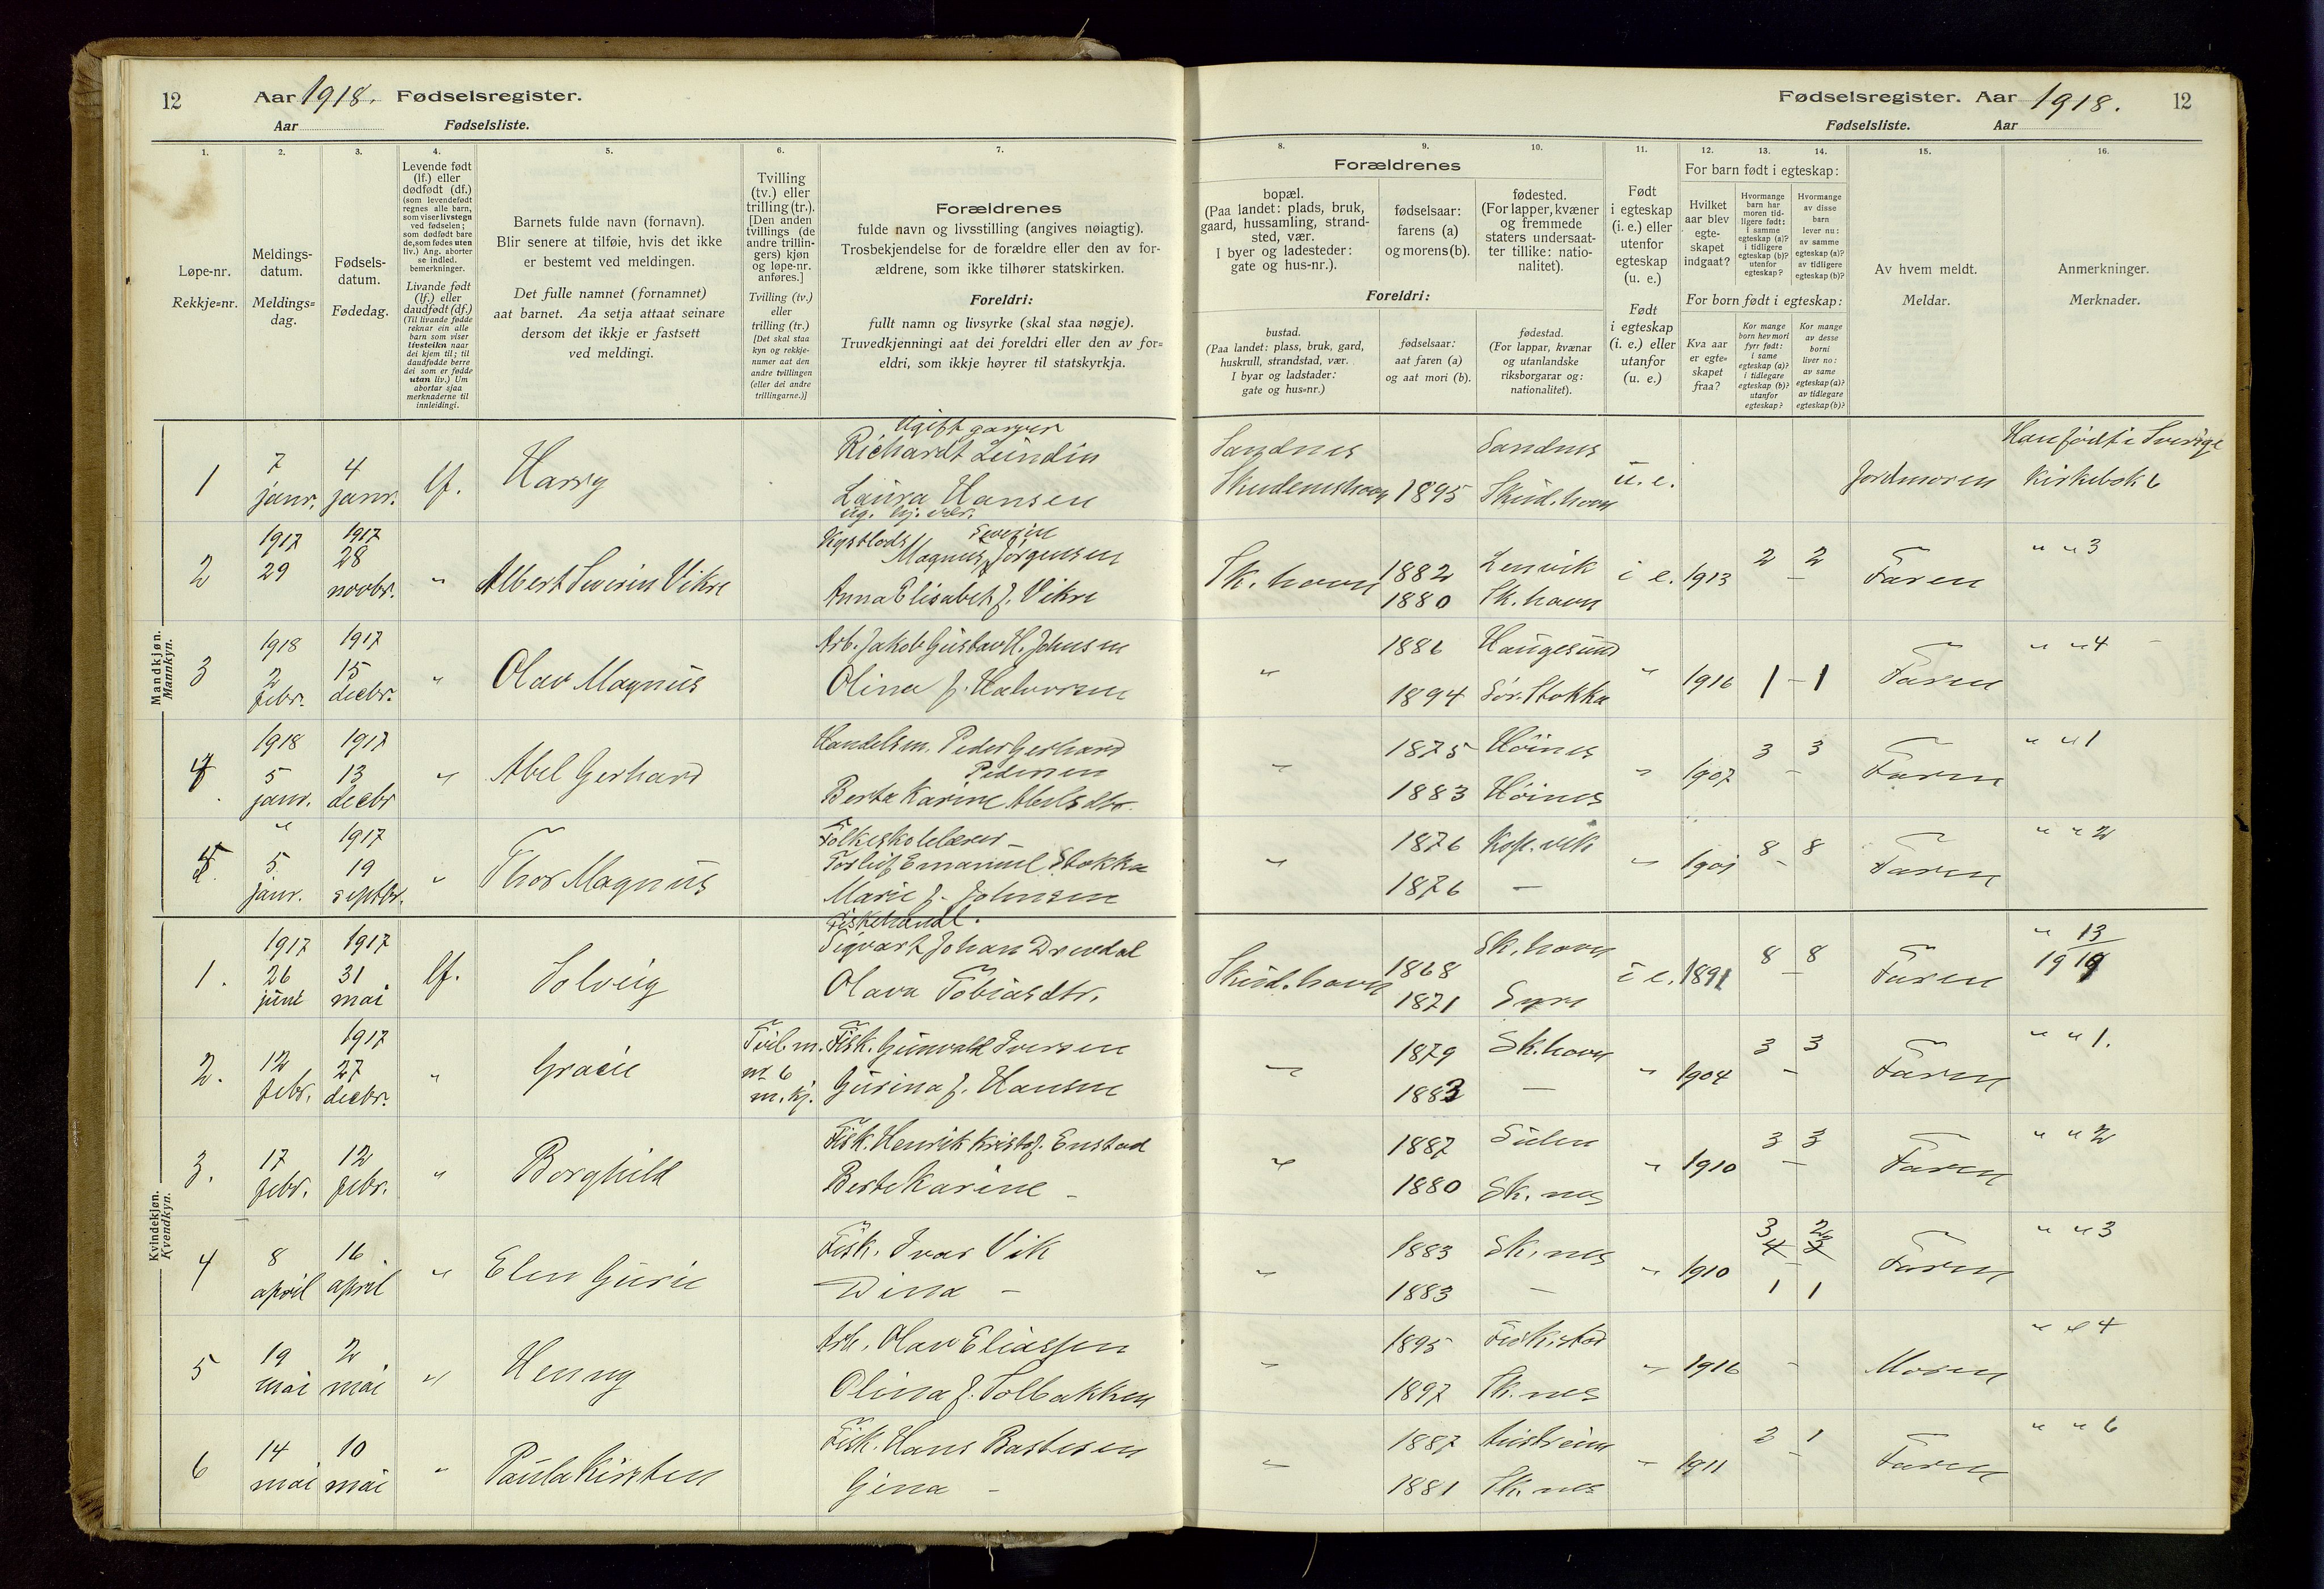 12
Aar 1918. Fødselsregister.
Aar
Fødselsliste.
Fødselsregister. Aar 1918.
12
Fødselsliste.
Aar
1.
2.
3.
4.
5.
6.
7.
8.
9.
10.
11.
12.
13.
14.
15.
16.
Løpe-nr.
Rekkje=nr.
Meldings-
datum.
Meldings=
dag.
Fødsels-
datum.
Fødedag.
Levende født
(lf.) eller
dødfødt (df.)
(som levendefødt
regnes alle barn,
som viser livstegn
ved fødselen;
som dødfødt bare
de, som fødes uten
liv.) Ang. aborter
se indled.
bemerkninger.
Livande født
(lf.) eller
daudfødt (df.)
(Til livande fødde
reknar ein alle
barn som viser
livsteikn naar
dei kjem til; til
daudfødde berre
dei som er fødde
utan liv.) Um
abortar sjaa
merknaderne til
innleidingi.
Barnets fulde navn (fornavn).
Blir senere at tilføie, hvis det ikke
er bestemt ved meldingen.
Det fulle namnet (fornamnet)
aat barnet. Aa setja attaat seinare
dersom det ikkje er fastsett
ved meldingi.
Tvilling
(tv.) eller
trilling (tr.).
[Den anden
tvillings (de
andre trillin-
gers) kjøn
og løpe-nr.
anføres.]
Tvilling (tv.)
eller
trilling (tr.)
[Det skal staa
kyn og rekkje-
numer aat den
andre tvillingen
(eller dei andre
trillingarne.)]
Forældrenes
fulde navn og livsstilling (angives nøiagtig).
Trosbekjendelse for de forældre eller den av for-
ældrene, som ikke tilhører statskirken.
Foreldri:
fullt namn og livsyrke (skal staa nøgje).
Truvedkjenningi aat dei foreldri eller den av for=
eldri, som ikkje høyrer til statskyrkja.
Forældrenes
bopæl.
(Paa landet: plads, bruk,
gaard, hussamling, strand-
sted, vær.
I byer og ladesteder:
gate og hus-nr.).
fødselsaar:
farens (a)
og morens (b).
fødested.
(For lapper, kvæner
og fremmede
staters undersaat-
ter tillike: natio-
nalitet).
Foreldri:
bustad.
(Paa landet: plass, bruk, gard,
huskrull, strandstad, vær.
I byar og ladstader:
gate og hus=nr.)
fødselsaar:
aat faren (a)
og aat mori (b).
fødestad.
(For lappar, kvænar
og utanlandske
riksborgarar og:
nationalitet).
Født
i egteskap
(i. e.) eller
utenfor
egteskap
(u. e.)
Født
i egteskap
(i. e.) eller
utanfor
(u. e.)
For barn født i egteskap:
Hvilket
aar blev
egte-
skapet
indgaat?
Hvormange
barn har
moren tid-
ligere født:
i samme
egteskap (a)?
i tidligere
egteskap (b)?
utenfor
egteskap?
Hvormange
av disse
barn
lever nu:
av samme
egteskap (a)?
av tidligere
egteskap (b)?
For born født i egteskap:
Kva aar
er egte=
skapet
fraa?
Kor mange
born hev mori
fyrr født:
i same
egteskap (a)?
i tidlegare
egteskap (b)?
utanfor
egteskap?
Kor mange
av desse
borni
liver no:
av same
egteskap (a)?
av tidlegare
egteskap (b)?
Av hvem meldt.
Meldar.
Anmerkninger.
Merknader.
Mandkjøn.
Mannkyn.
1 7 janr. 4 janr. lf. Harry
Ugift garver
Richardt Lundin
Laura Hansen
ug.
Sandnes Sandnes
Skudeneshavn 1895 Skud.havn u. e. Jordmoren
Han født i Sverige
Kirkebok 6
2 1917 29 1917 28 novbr. " Albert Severin Vikre
Severin
Magnus Jørgensen
Anna Elisabet f. Vikre
Sk. havn 1882 Lenvik i e. 1913 2 – 2 Faren " " 3
1880 Sk. havn
3 1918 2 febr. 1917 15 decbr. " Olav Magnus
Arb. Jakob Gustav H. Johnsen
Olina f. Halvorsen
" 1886 Haugesund " 1916 1 – 1 Faren " " 4
1894 Sør. Stokka
4 1918 5 janr. 1917 13 decbr " Abel Gerhard
Handelsm. Peder Gerhard
Pedersen
Berta Karine Abelsdtr.
" 1875 Høines " 1907 3 – 3 Faren " " 1
1883 Høines
5. " 5. janr. 1917 19 septbr. " Thor Magnus
Folkeskolelærer –
Torleif Emanuel Stokka
Marie f. Johnsen
" 1876 Kop.vik " 1901 8 – 8 Faren " " 2
1876 –
Kvindekjøn.
Kvendkyn.
1. 1917 26 juni 1917 31 mai lf. Solveig
Fiskehandl.
Sigvart Johan Drevdal
Olava Tobiasdtr.
Skud.havn 1868 Sk. havn i e. 1891 8 – 8 Faren " 13
1919
1871 Syre
2. 12 febr. 1917 27 decbr. " Gracie Tvil. m. nr 6 m. kj.
Fisk. Gunvald Iversen
Gurina f. Hansen
" 1879 Sk.havn " 1904 3 – 3 Faren " " 1.
1883 –
3. 17 febr. 12 febr. " Borghild
Fisk. Henrik Kristof. Enstad
Berte Karine –
" 1887 Sulen " 1910 3 – 3 Faren " " 2
1880 Sk. nes
4 8 april 16 april " Elen Gurie
Fisk. Ivar Vik
Dina –
" 1883 Sk. nes " 1910 3 4 – 2 3 Faren " " 3
1883 – 1 1
5 19 mai 2 mai " Henny
Arb. Olav Eliassen
Olina f. Solbakken
" 1895 " 1916 – Moren " " 4
1897 Sk. nes
6 14 mai 10 mai " Paula Kirsten
Fisk. Hans Bastesen
Gina –
" 1887 Austreim " 1911 2 – 1 Faren " " 6
1881 Sk. nes